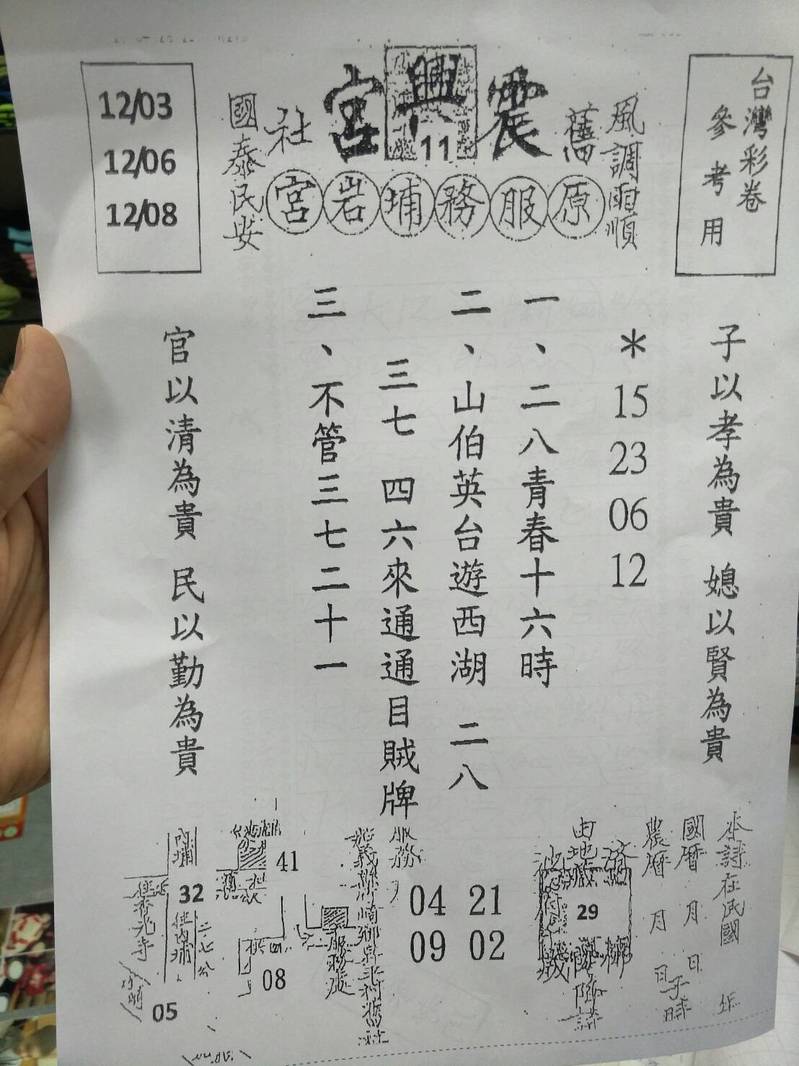 台灣彩卷
參考用
風調雨順
舊
震興宮
11
社
國泰民安
12/03
12/06
12/08
原服務埔岩宮
子以孝為貴 媳以賢為貴
＊15 23 06 12
一、二八青春十六時
二、山伯英台遊西湖 二八
三七 四六來通通目賊牌
三、不管三七二十一
官以清為貴 民以勤為貴
國曆 月 日
農曆 月 日
子時
29
服務
04 21
09 02
41
08
內埔
32
05